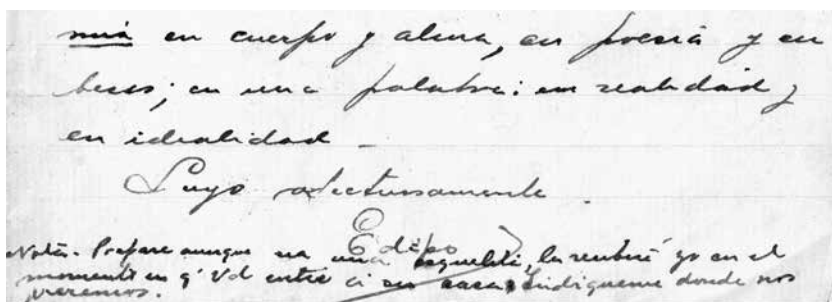 mía en cuerpo y alma, en poesía y en
besos; en una palabra: en realidad y
en idealidad.
Suyo afectuosamente
Edipo
Nota.- Prepare aunque sea una esquelita, la recibiré yo en el
momento en q' Vd entre a su casa. Indíqueme donde nos
veremos.